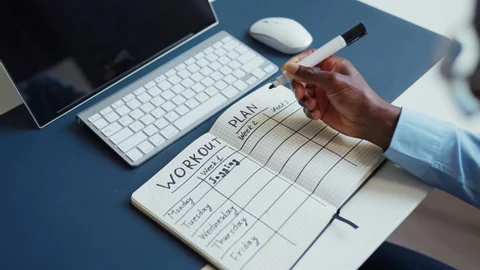 WORKOUT PLAN
Week 1 Week 2
Jogging
Monday
Tuesday
Wednesday
Thursday
Friday